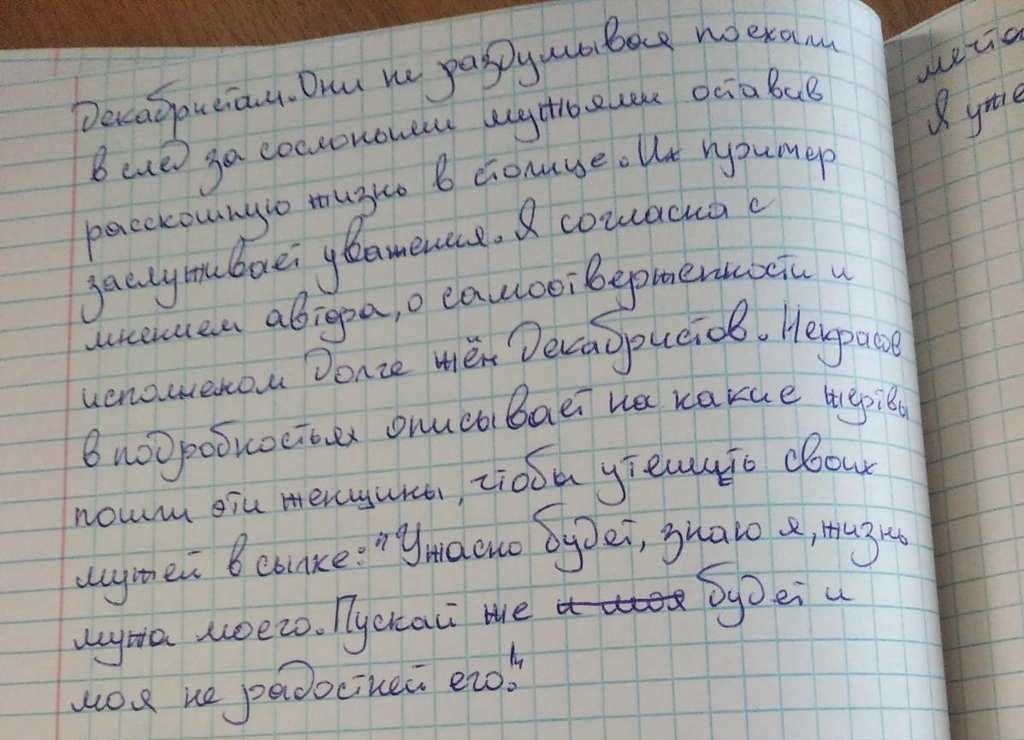 Декабристам. Они не раздумывая поехали
в след за сослоными мужьями оставив
расскошную жизнь в столице. Их пример
заслуживает уважения. Я согласна с
мнением автора, о самоотверженности и
исполненом долге жён Декабристов. Некрасов
в подробностях описывает на какие жертвы
пошли эти женщины, чтобы утешить своих
мужей в сылке: "Ужасно будет, знаю я, жизнь
мужа моего. Пускай же и моя будет и
моя не радостней его."
Я уже